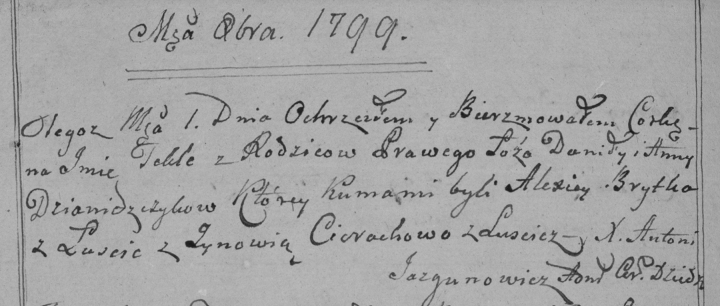 Msca 8bra. 1799.
Tegoz Msca 1. Dnia Ochrzciłem y Bierzmowałem Corkę
na Imię Teklę z Rodzicow Prawego Łoża Daniły i Anny
Dzianidzczykow Którey Kumami byli Alexiey Brytka
z Łuscic z Zynowią Cierachowo z Łuscicz X. Antoni
Jazgunowicz Adm Cer. Dziedz